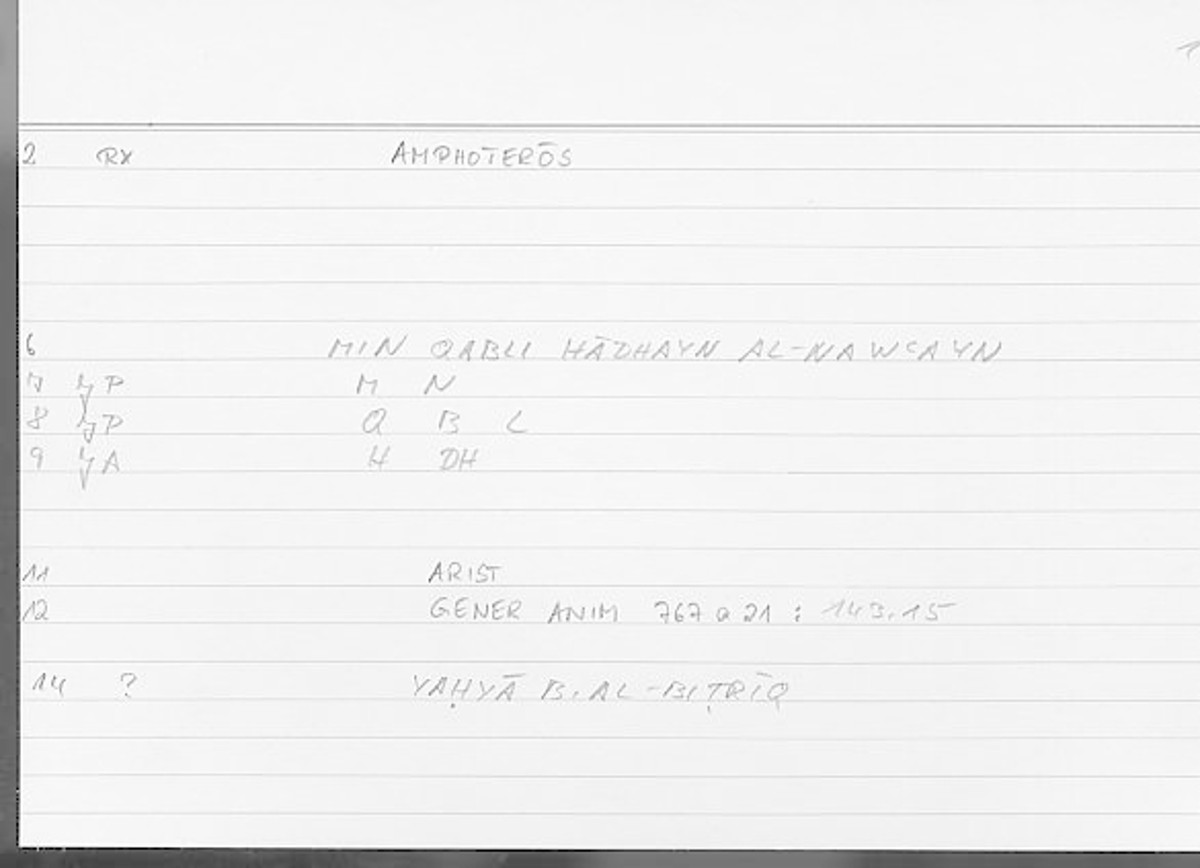 1
2 RX AMPHOTERŌS
6 MIN QABLI HĀDHAYN AL-NAWᶜAYN
7 P M N
8 P Q B L
9 A H DH
11 ARIST
12 GENER ANIM 767 a 21 : 143.15
14 ? YAḤYĀ B. AL-BIṬRĪQ